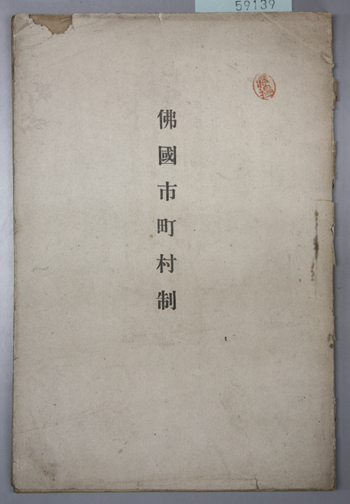 59139
佛國市町村制